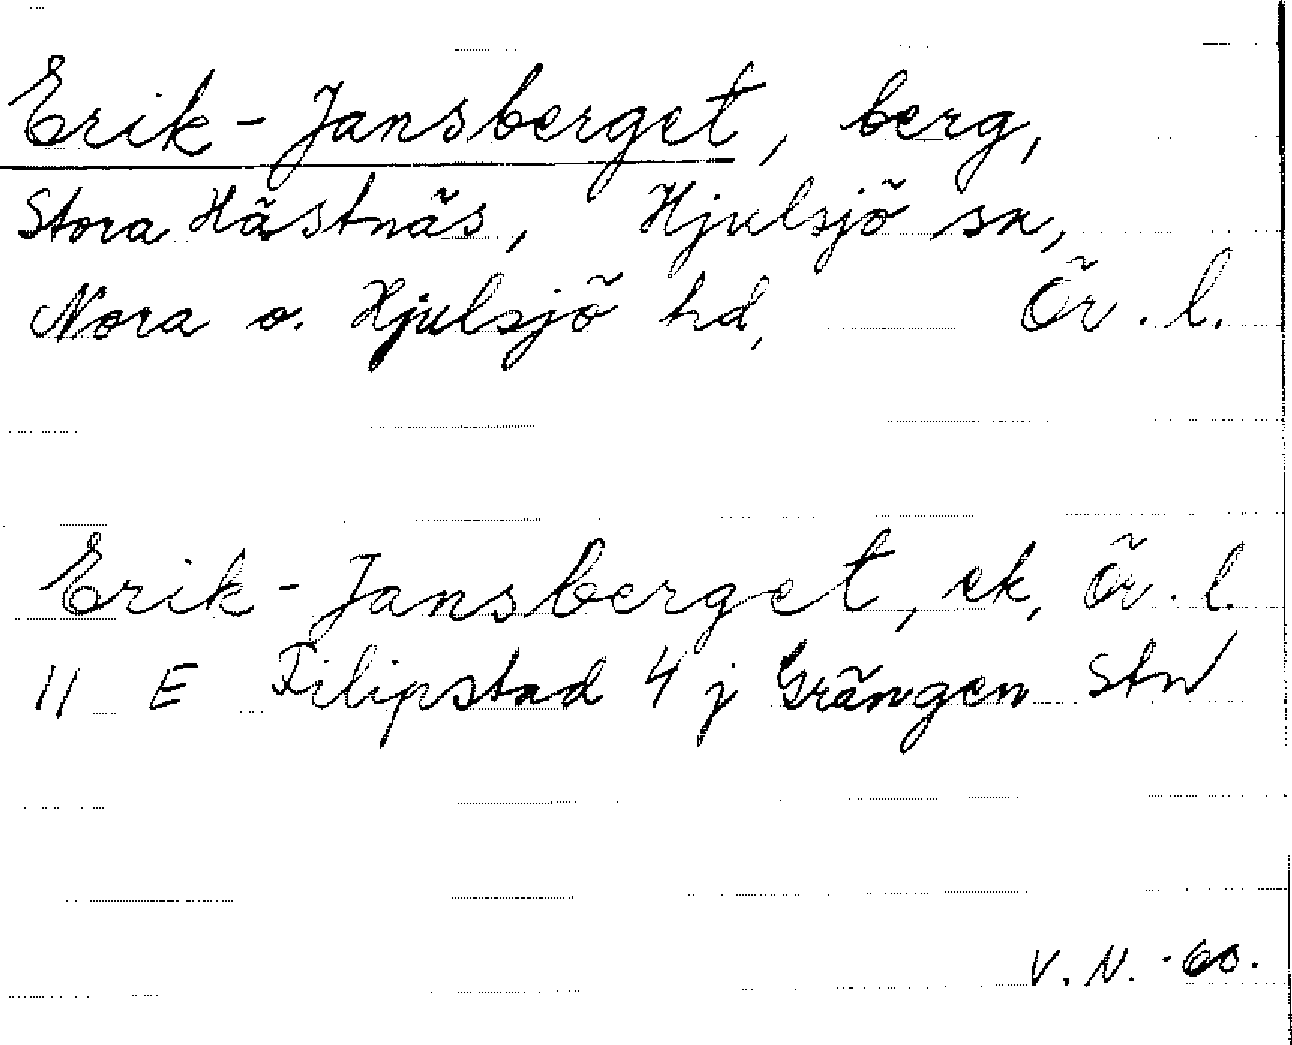 Erik-Jansberget, berg,
Stora Hästnäs, Hjulsjö sn,
Nora o. Hjulsjö hd, Ör. l.
Erik-Jansberget, ek, Ör. l.
11 E Filipstad 4 j Grängen Stn
V. N. -60.